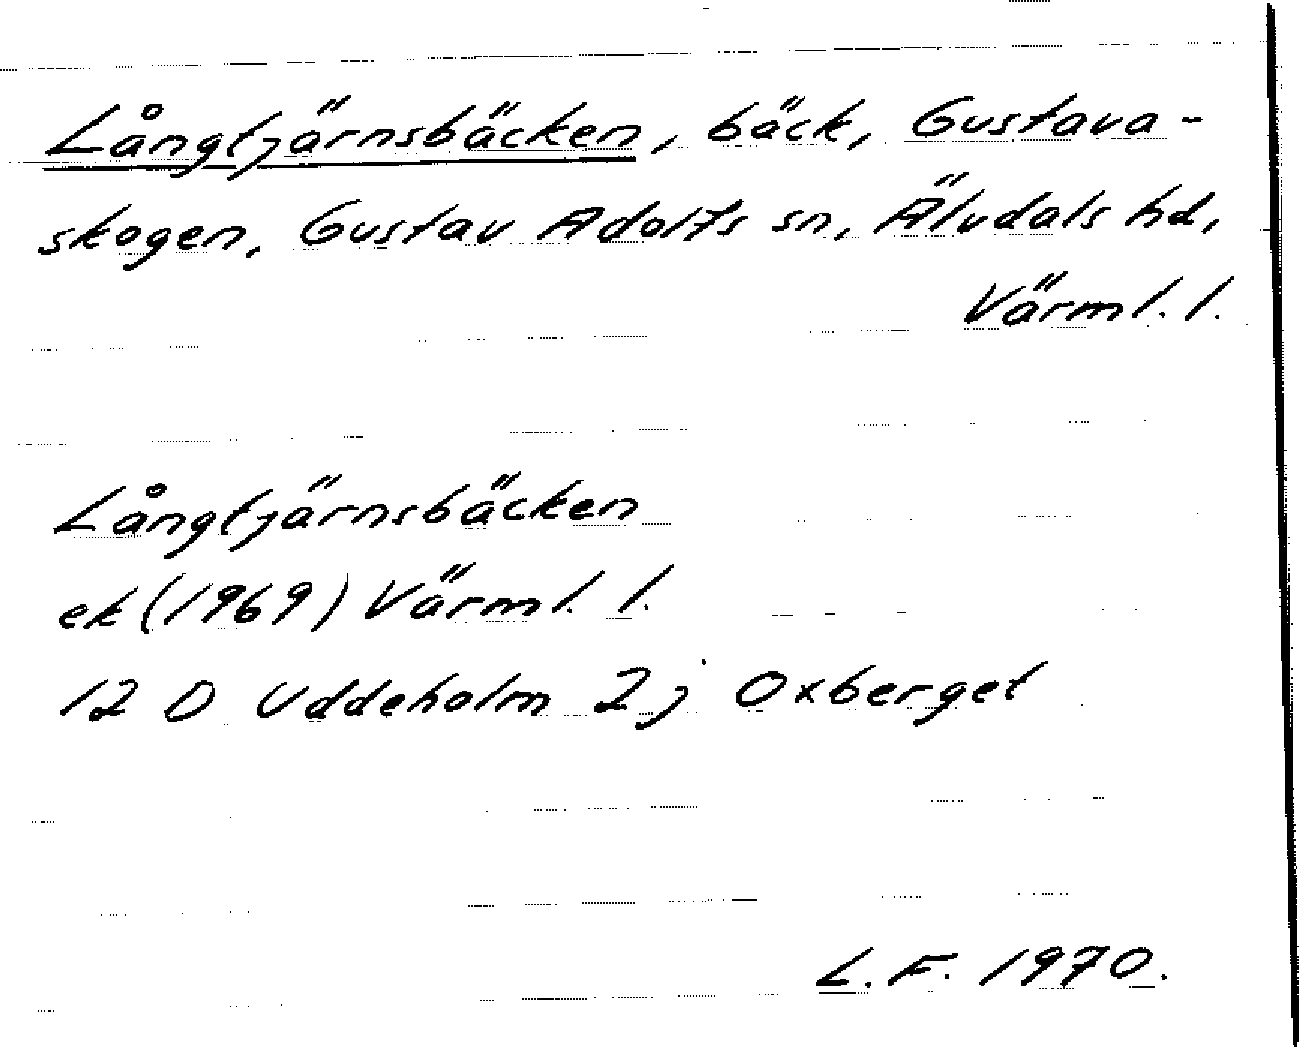 Långtjärnsbäcken, bäck, Gustava-
skogen, Gustav Adolfs sn, Älvdals hd,
Värml. l.
Långtjärnsbäcken
ek (1969) Värml. l.
12 D Uddeholm 2j Oxberget
L. F. 1970.